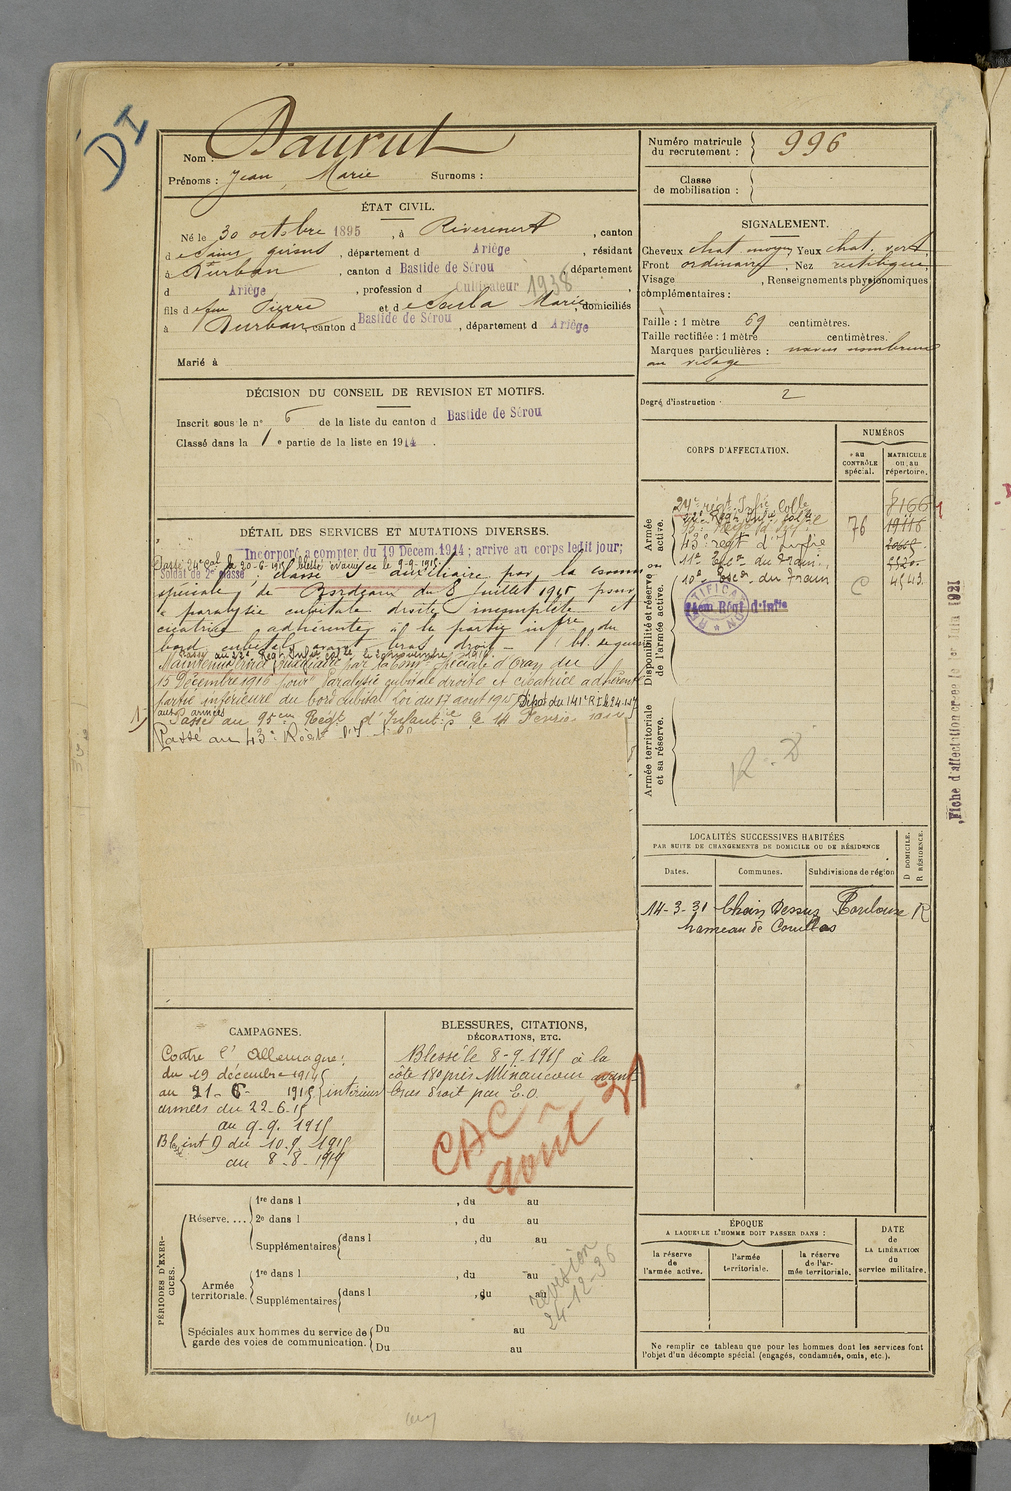 DI
Nom : Daurut
Prénoms : Jean Marie Surnoms :
Numéro matricule du recrutement : 996
Classe de mobilisation :
ÉTAT CIVIL.
Né le 30 octobre 1895, à Rivèrenert, canton
d e Saint girons, département d Ariège, résidant
à Durban, canton d Bastide de Sérou, département
d Ariège, profession d Cultivateur 1938
fils d e feu Pierre et d e Marie, domiciliés
à Durban canton d Bastide de Sérou, département d Ariège
Marié à
SIGNALEMENT.
Cheveux chat moyen, Yeux chat. vert
Front ordinaire, Nez rectiligne
Visage , Renseignements physionomiques
complémentaires :
Taille : 1 mètre 69 centimètres.
Taille rectifiée : 1 mètre centimètres.
Marques particulières : naevus nombreux
au visage
Degré d'instruction : 2
DÉCISION DU CONSEIL DE REVISION ET MOTIFS.
Inscrit sous le n° 6 de la liste du canton d Bastide de Sérou
Classé dans la 1e partie de la liste en 1914.
DÉTAIL DES SERVICES ET MUTATIONS DIVERSES.
Incorporé à compter du 19 Décem. 1914 ; arrivé au corps ledit jour;
Passé 24e Col le 20-6-1915 blessé évacué le 9-9-1915
Soldat de 2e classe : classé Sce auxiliaire par la comm
spéciale de Bordeaux du 8 Juillet 1915 pour
paralysie cubitale droite incomplète et
cicatrice adhérente à la partie infre du
bord cubital avant bras droit
Passé au 22e Régt Infie Colle le 20 novembre 1916
Maintenu service auxiliaire par la Comon spéciale d'Oran du
15 Décembre 1916 pour Paralysie cubitale droite et cicatrice adhérente
partie inférieure du bord cubital Loi du 17 août 1915 Dépôt du 141e R.I. le 24-1-17
aux armées
1) Passé au 95ème Régt d'Infantie le 14 Février
Passé au 43e Régt d'I
CORPS D'AFFECTATION.
NUMÉROS
au CONTRÔLE spécial.
MATRICULE ou au répertoire.
Disponibilité et réserve de l'armée active.
Armée active.
24e régt Infie Colle 8166
22e Régt Infie Colle 76 19116
43e régt d'Infie
11e Escon du Train
10e Escon du Train C 4543
RECTIFICATION
Armée territoriale et sa réserve.
R. D
LOCALITÉS SUCCESSIVES HABITÉES
PAR SUITE DE CHANGEMENTS DE DOMICILE OU DE RÉSIDENCE
Dates. Communes. Subdivisions de région
D DOMICILE.
R RÉSIDENCE.
14-3-31 Dessus Toulouse R
hameau de
Fiche d'affectation créée le 1er Juin 1921
CAMPAGNES.
Contre l'Allemagne :
du 19 décembre 1914
au 21-6-1915 intérieur
armées du 22-6-15
au 9-9-1915
Bssé int D du 10-9-1915
au 8-8-1919
BLESSURES, CITATIONS,
DÉCORATIONS, ETC.
Blessé le 8-9-1915 à la
côte 180 près Minaucourt avant
bras droit par E.O.
CAC
août 21
PÉRIODES D'EXERCICES.
Réserve....
1re dans l , du au
2e dans l , du au
Supplémentaires dans l , du au
Armée territoriale.
1re dans l , du au
Supplémentaires dans l , du au
Spéciales aux hommes du service de garde des voies de communication.
Du au
Du au
revision
24-12-36
ÉPOQUE
A LAQUELLE L'HOMME DOIT PASSER DANS :
la réserve de l'armée active.
l'armée territoriale.
la réserve de l'armée territoriale.
DATE de LA LIBÉRATION du service militaire.
Ne remplir ce tableau que pour les hommes dont les services font
l'objet d'un décompte spécial (engagés, condamnés, omis, etc.).